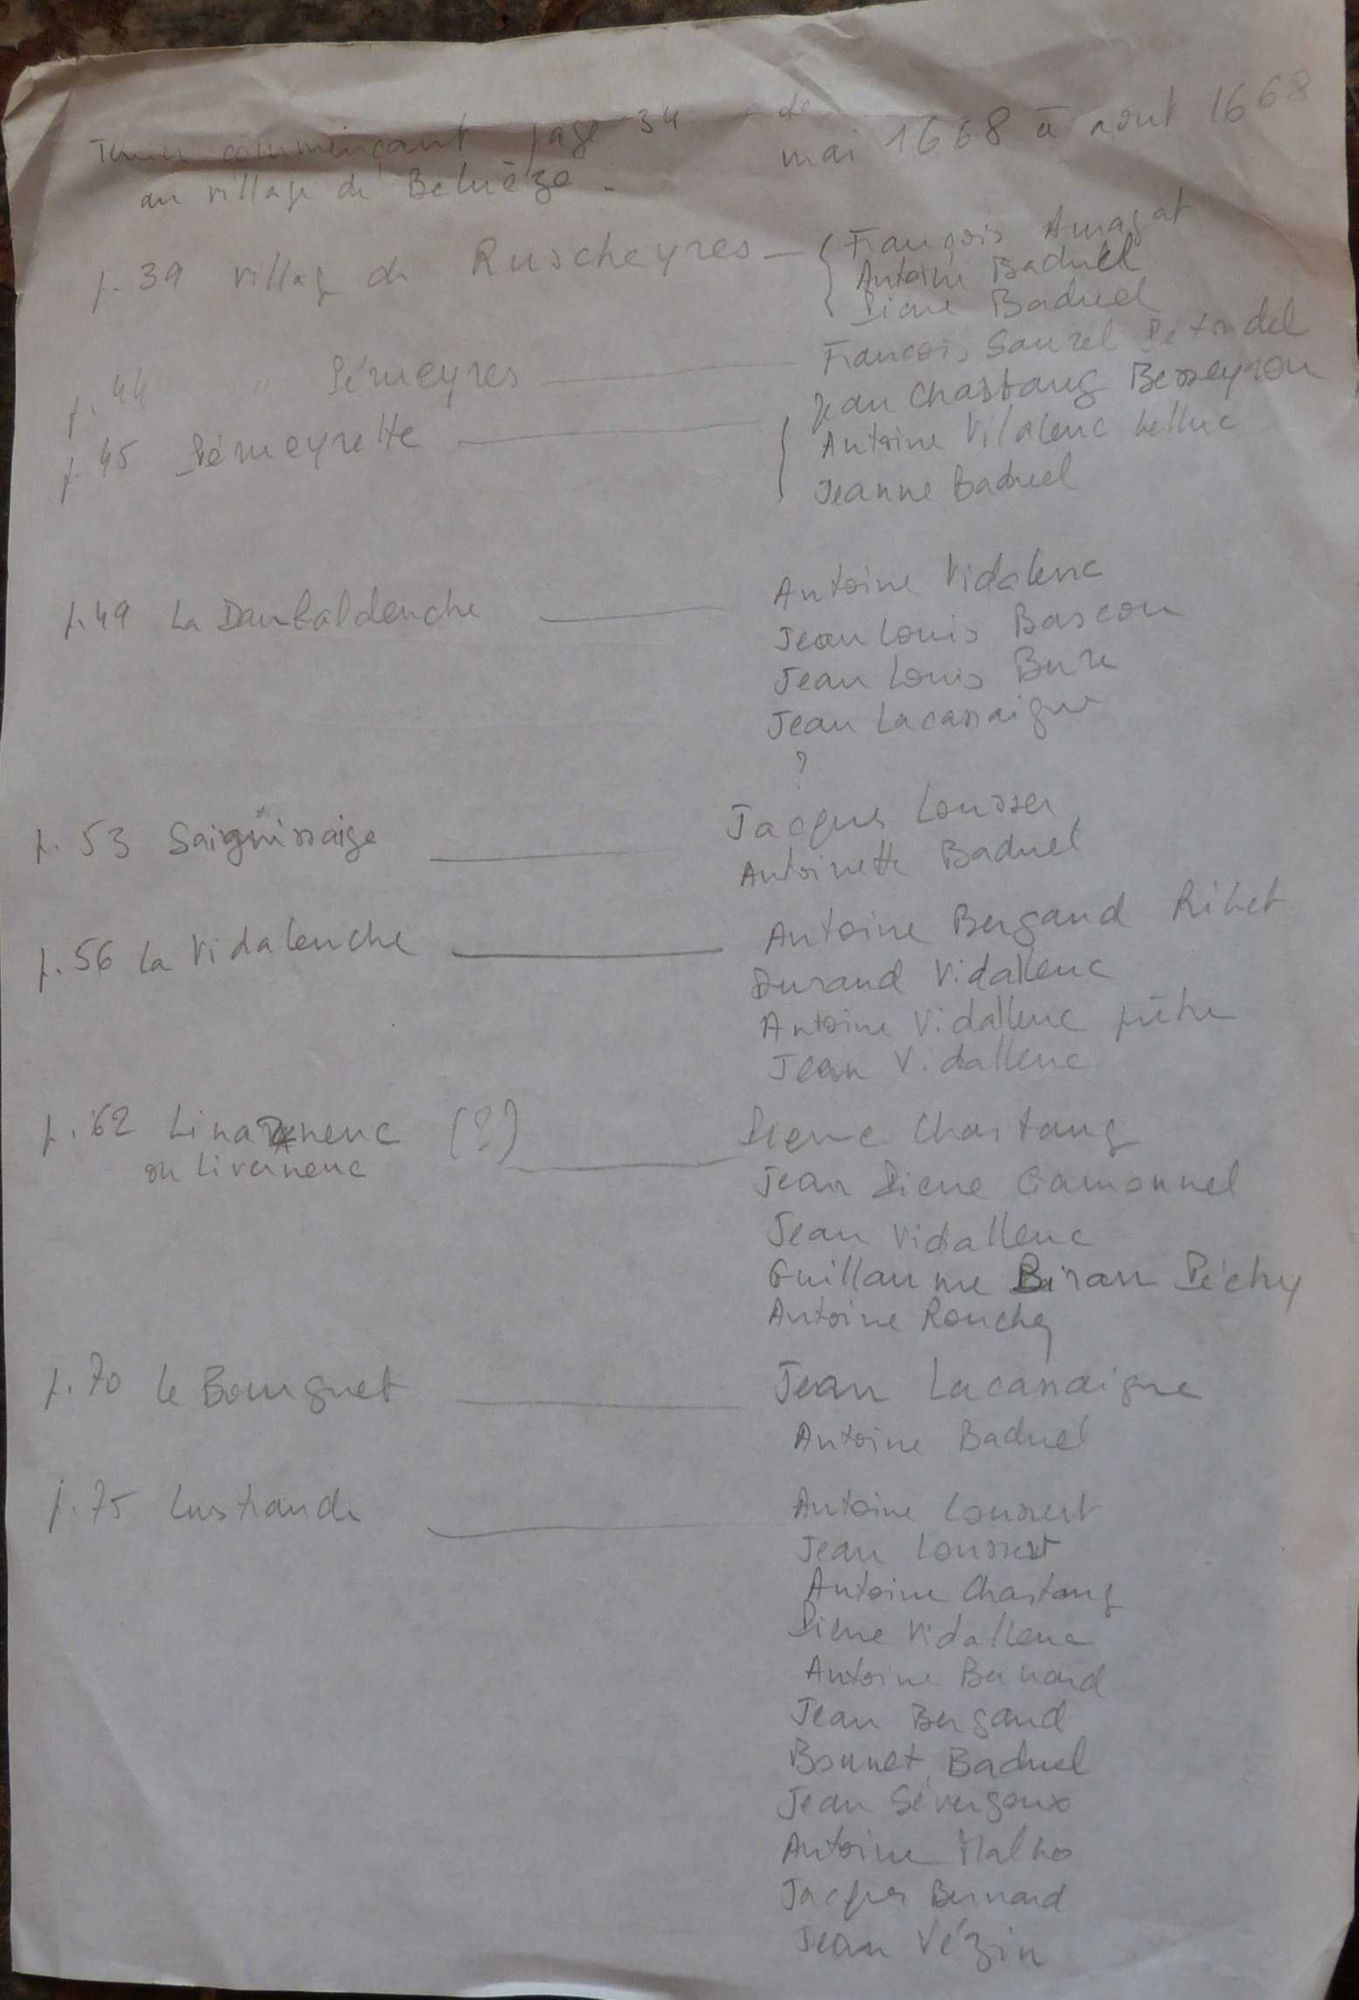 Terrier commençant page 34 - de
mai 1668 à aout 1668
au village de Beluèze.
p. 39 village de Ruscheyres — François Amagat
Antoine Baduel
Pierre Baduel
p. 44 " Pémeyres — François Sauzel
Jean Chastang Besseyron
p. 45 Pémeyrette — Antoine Vilalenc
Jeanne Baduel
p. 49 La Danbaldenche — Antoine Vidalenc
Jean Louis Bascou
Jean Louis
Jean Lacassaigne
?
p. 53 — Jacques Lousser
Antoinette Baduel
p. 56 La Vidalenche — Antoine Bergaud Ribet
Durand Vidallenc
Antoine Vidallenc prêtre
Jean Vidallenc
p. 62 (?) — Pierre Chastang
ou Livernenc
Jean Pierre Gamonnel
Jean Vidallenc
Guillaume Biran Péchy
Antoine Rouchy
p. 70 Le Bourguet — Jean Lacassaigne
Antoine Baduel
p. 75 Lustrande — Antoine Loussert
Jean Loussert
Antoine Chastang
Pierre Vidallenc
Antoine Bernard
Jean Bergaud
Bonnet Baduel
Jean Sévergoux
Antoine Malho
Jacques Bernard
Jean Vézin